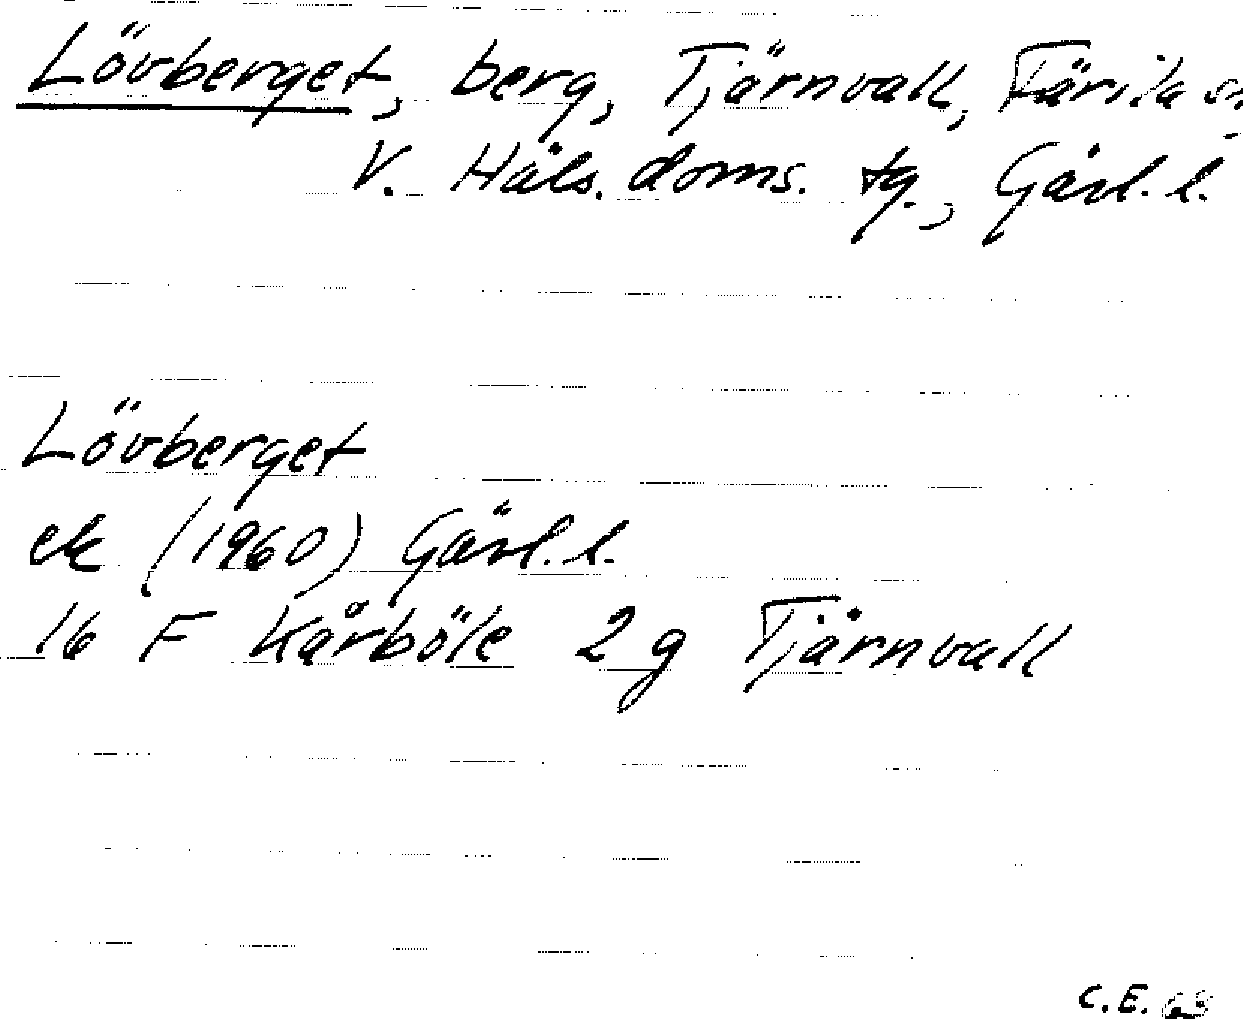 Lövberget, berg, Tjärnvall, Färila sn,
V. Häls. doms. tg., Gävl. l.
Lövberget
ek (1960) Gävl. l.
16 F Kårböle 2 g Tjärnvall
C. E. 63